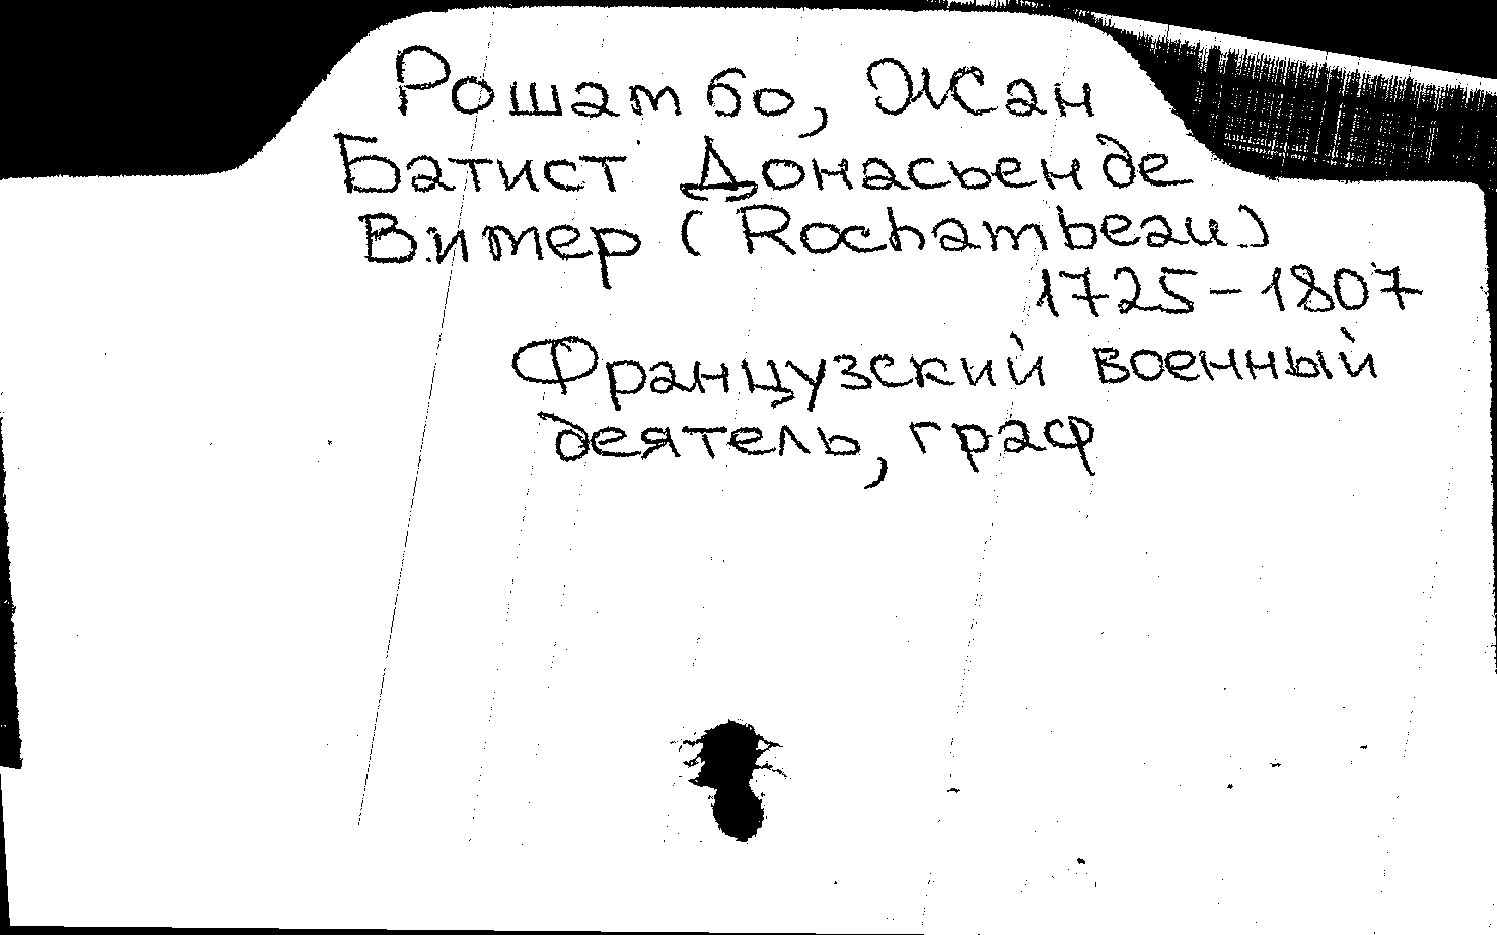 Рошамбо, Жан
Батист Донасьен де
Вимер (Rochambeau)
1725-1807
Французский военный
деятель, граф